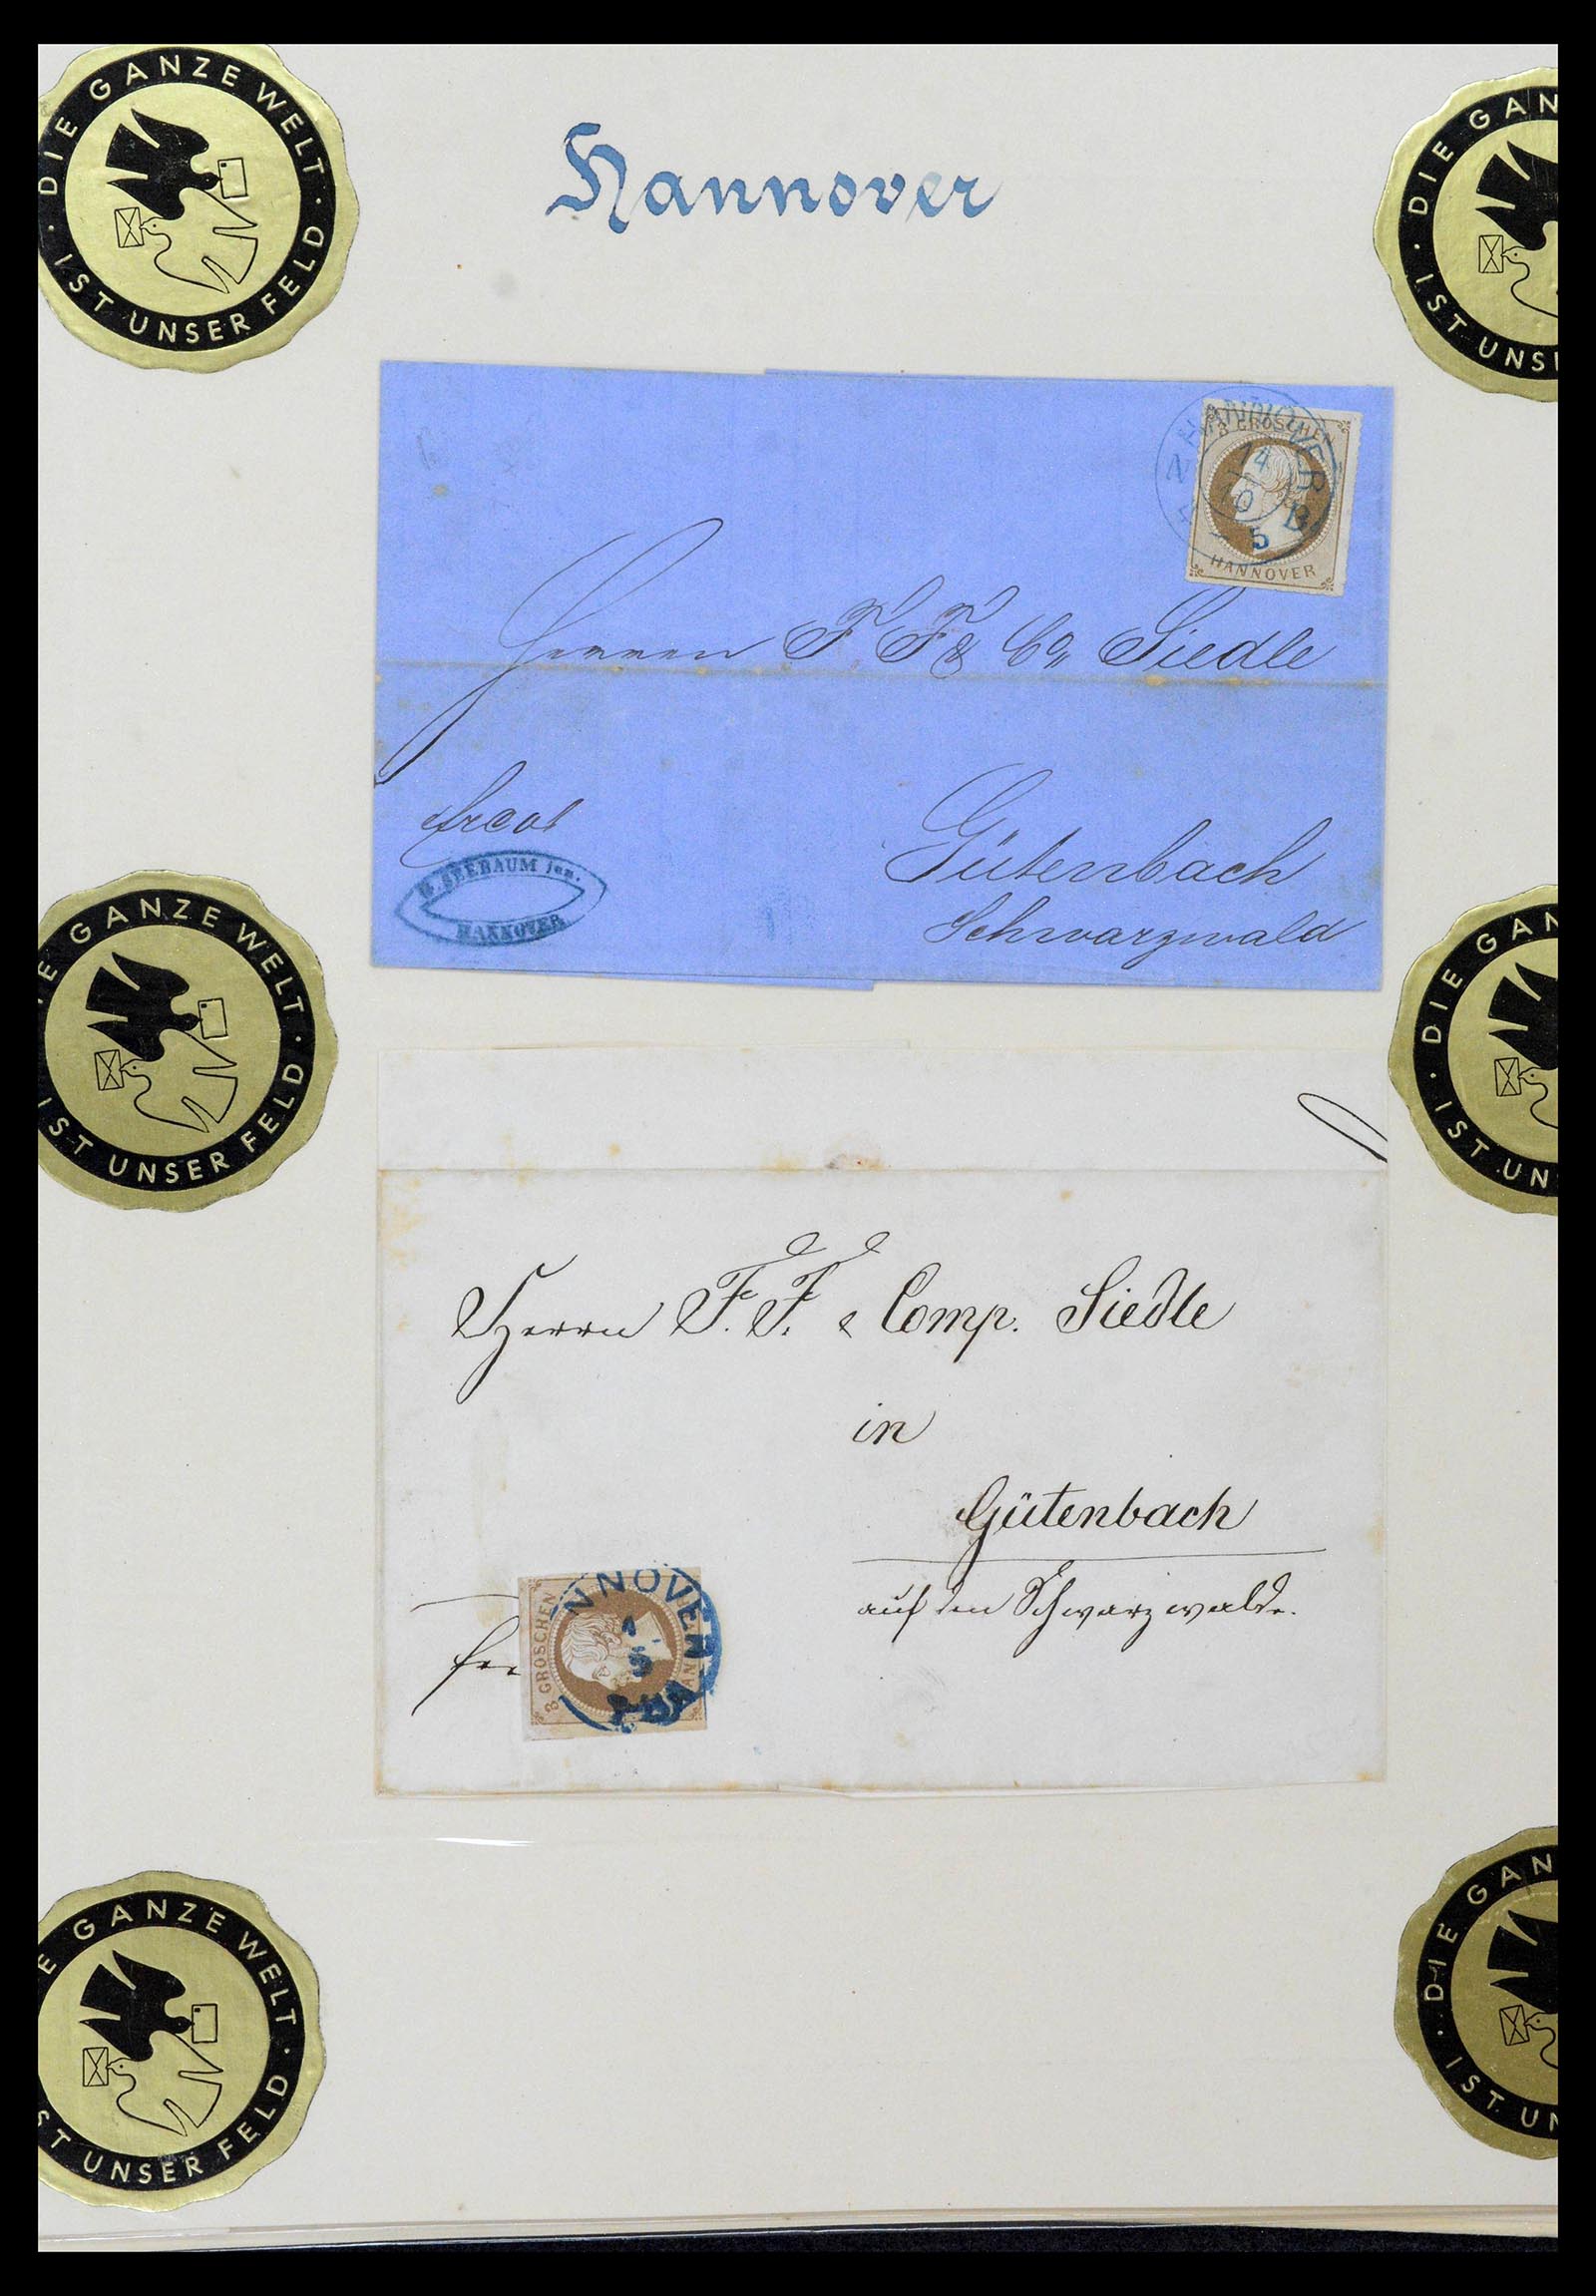 Hannover
DIE GANZE WELT · IST UNSER FELD ·
DIE GAN
· IST UNS
HANNOVER
14
10
5
B
3 GROSCHEN
HANNOVER
Herrn F. F. & Co. Siedle
G. SEEBAUM jun.
HANNOVER
Gütenbach
Schwarzwald
E GANZE WELT · IST UNSER FELD ·
DIE GAN
· IST UN
Herrn F. F. & Comp. Siedle
in
Gütenbach
auf dem Schwarzwalde.
NNOVER
1
5
3 GROSCHEN
AN
E GANZE WELT · ST UNSER FELD ·
DIE GAN
· IST UN